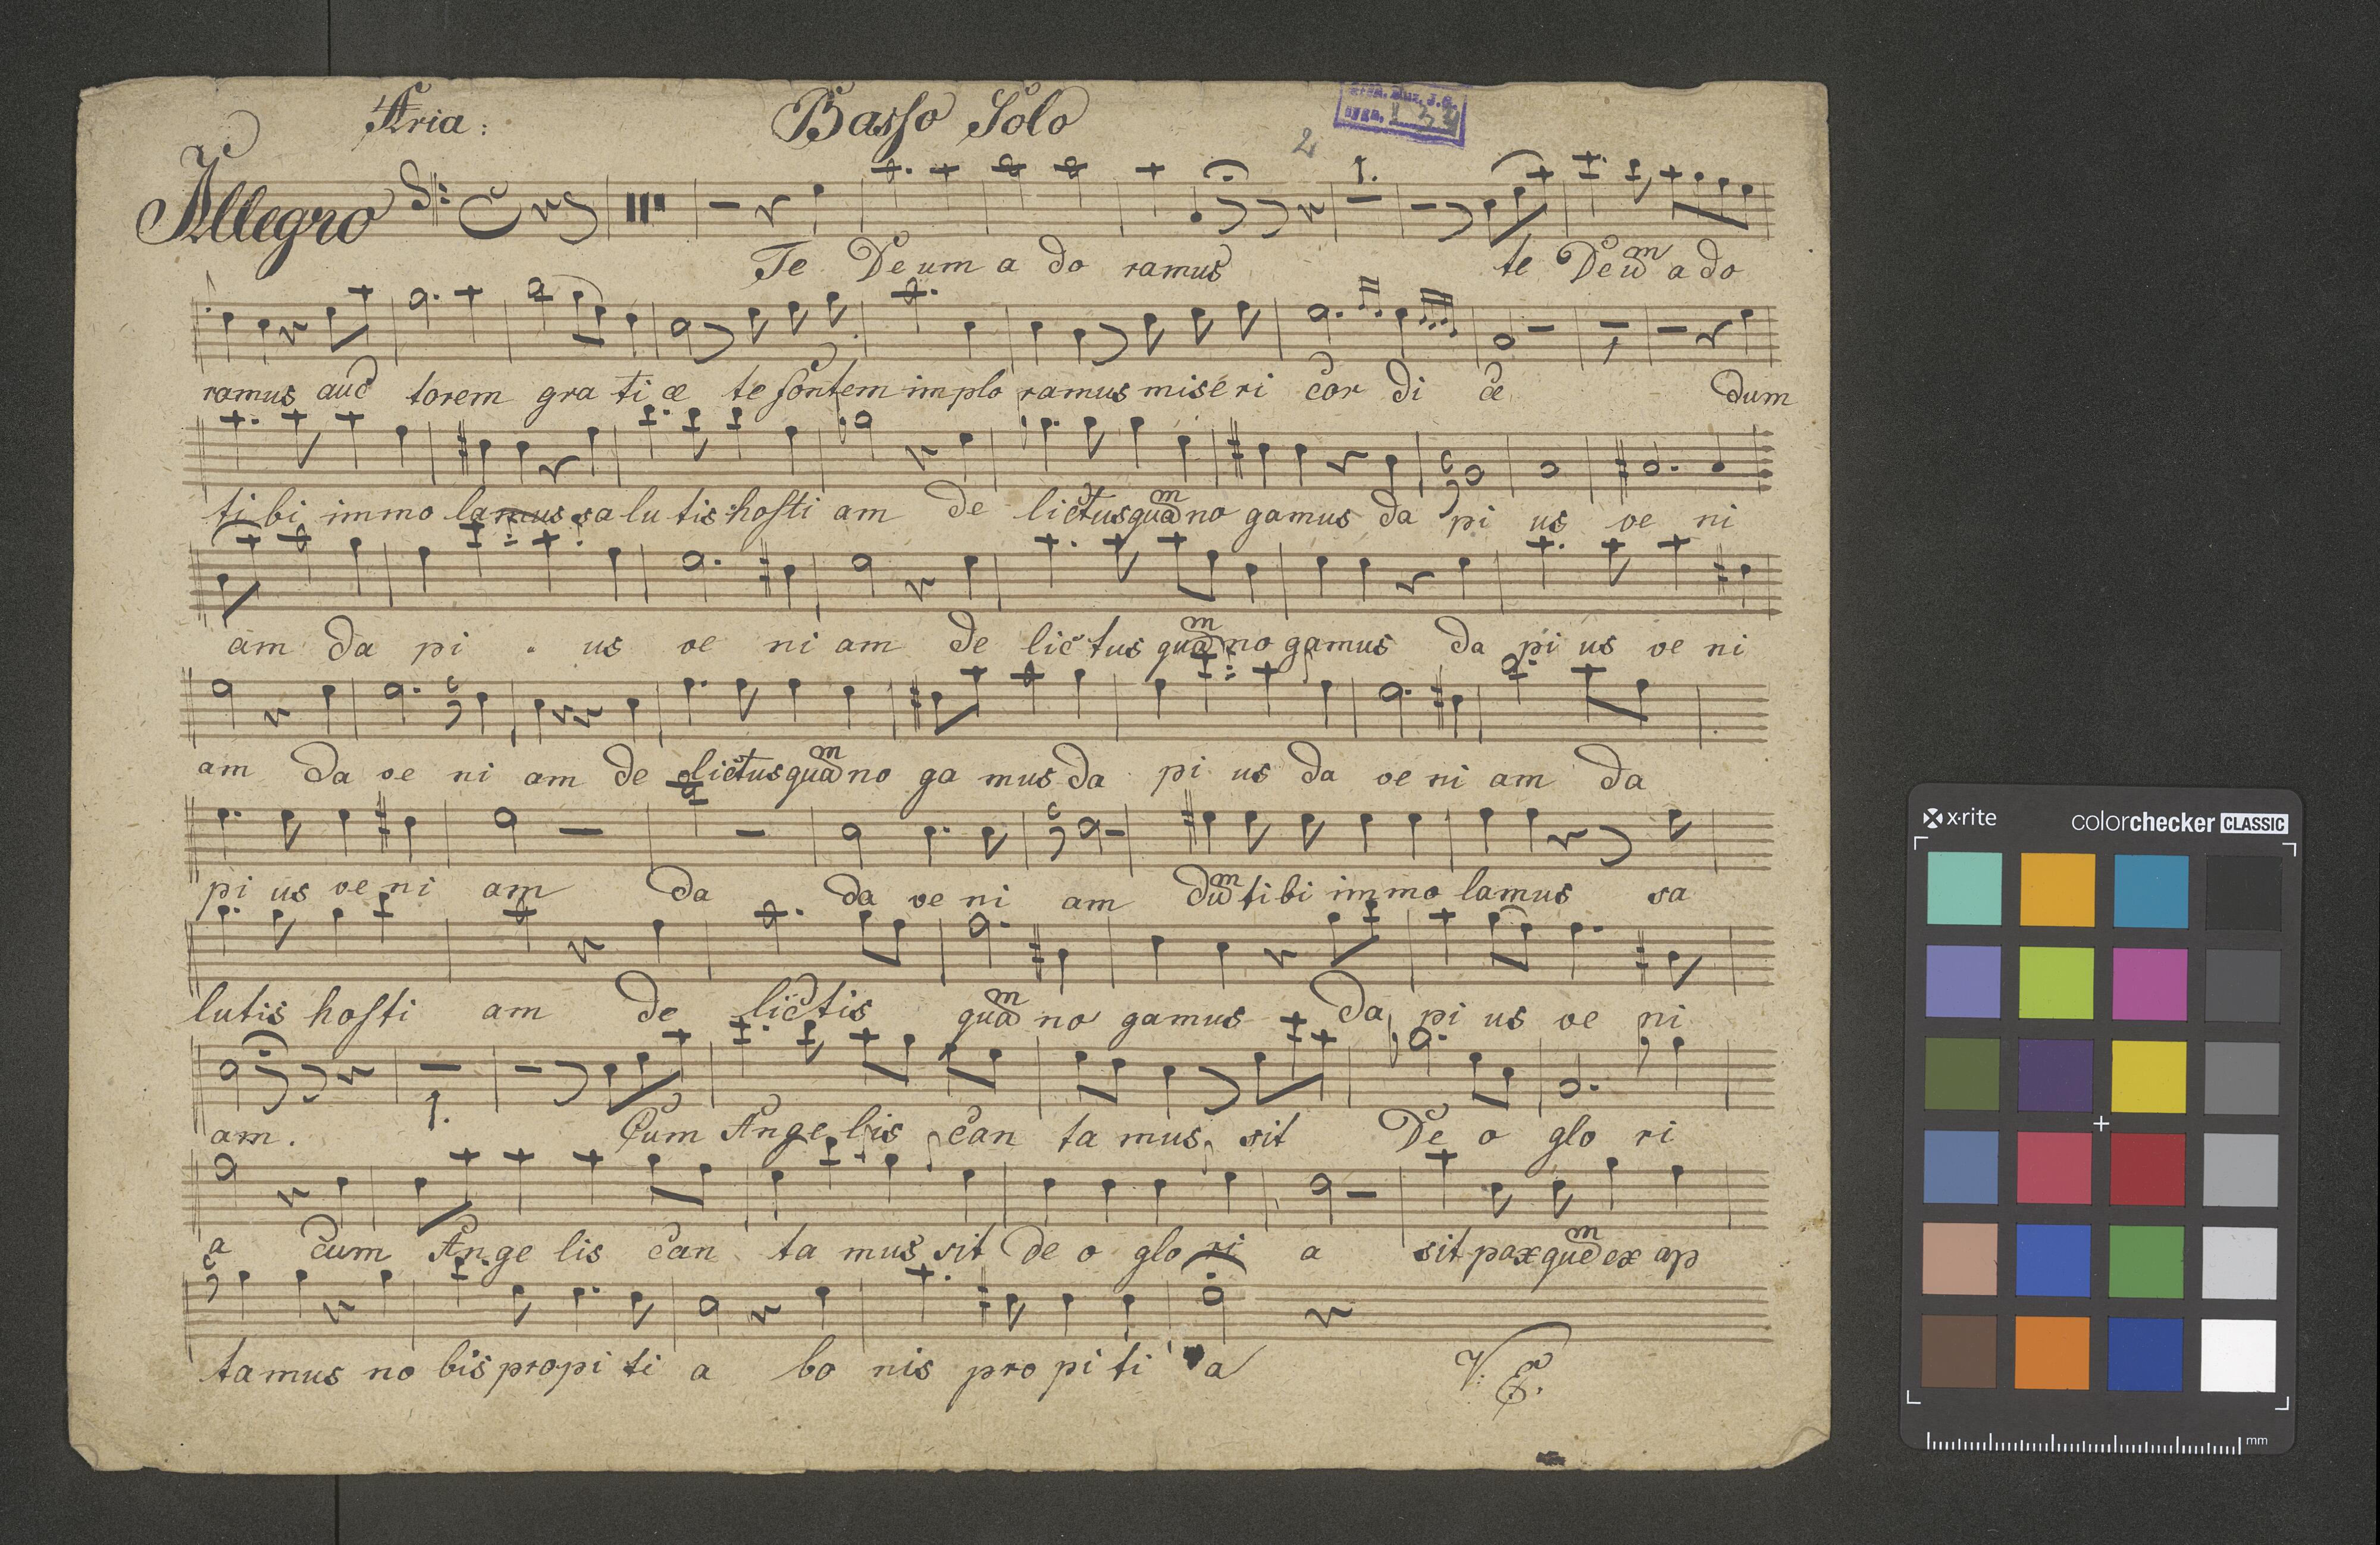 Aria:
Basso Solo
2
Allegro
1.
Te Deum a do ramus te Deũm a do
ramus auc torem gra ti æ te fontem implo ramus miseri cor di æ dum
1
ti bi immo lamus salutis hosti am de lictusquãm no gamus da pi us ve ni
am da pi . us ve ni am de lictus quãm no gamus da pi us ve ni
am da ve ni am de lictusquãm no ga mus da pi us da ve ni am da
pi us ve ni am da da ve ni am dũm tibi immo lamus sa
lutis hosti am de lictis quãm no gamus da pi us ve ni
1.
am. Cum Ange lis can ta mus sit De o glo ri
a cum Ange lis can ta mus sit de o glo ri a sit pax quẽm ex ap
tamus no bis propi ti a bo nis pro pi ti a
V:
x-rite
colorchecker CLASSIC
mm